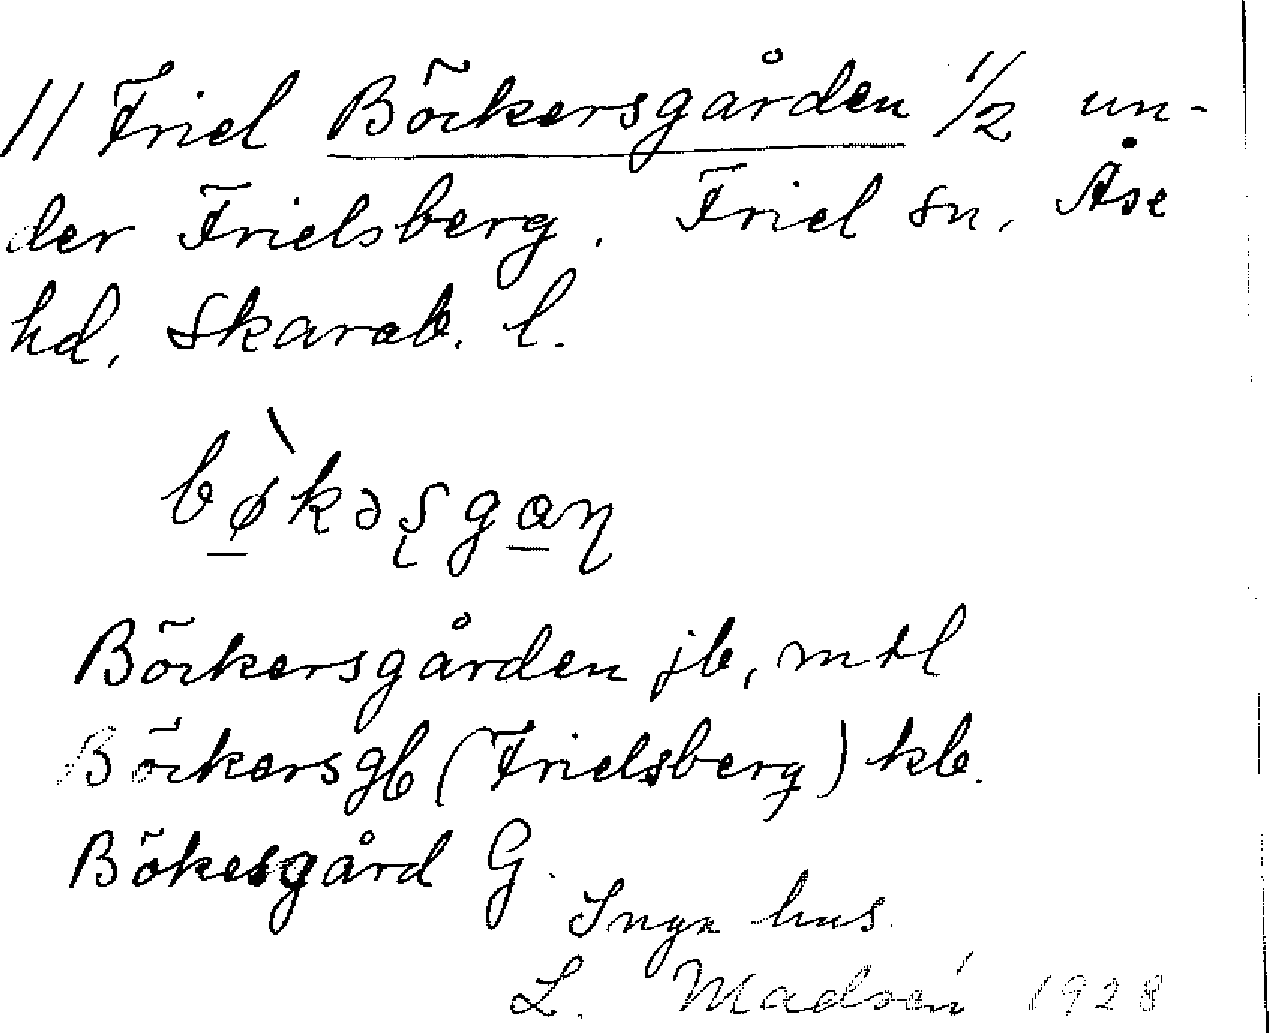 11 Friel Böckersgården 1/2 un-
der Frielsberg. Friel sn. Åse
hd, Skarab. l.
bø̀kəʂgɑɳ
Böckersgården jb, mtl
Böckersgb (Frielsberg) kb.
Bökesgård G.
Inga hus
L. Madsén 1928